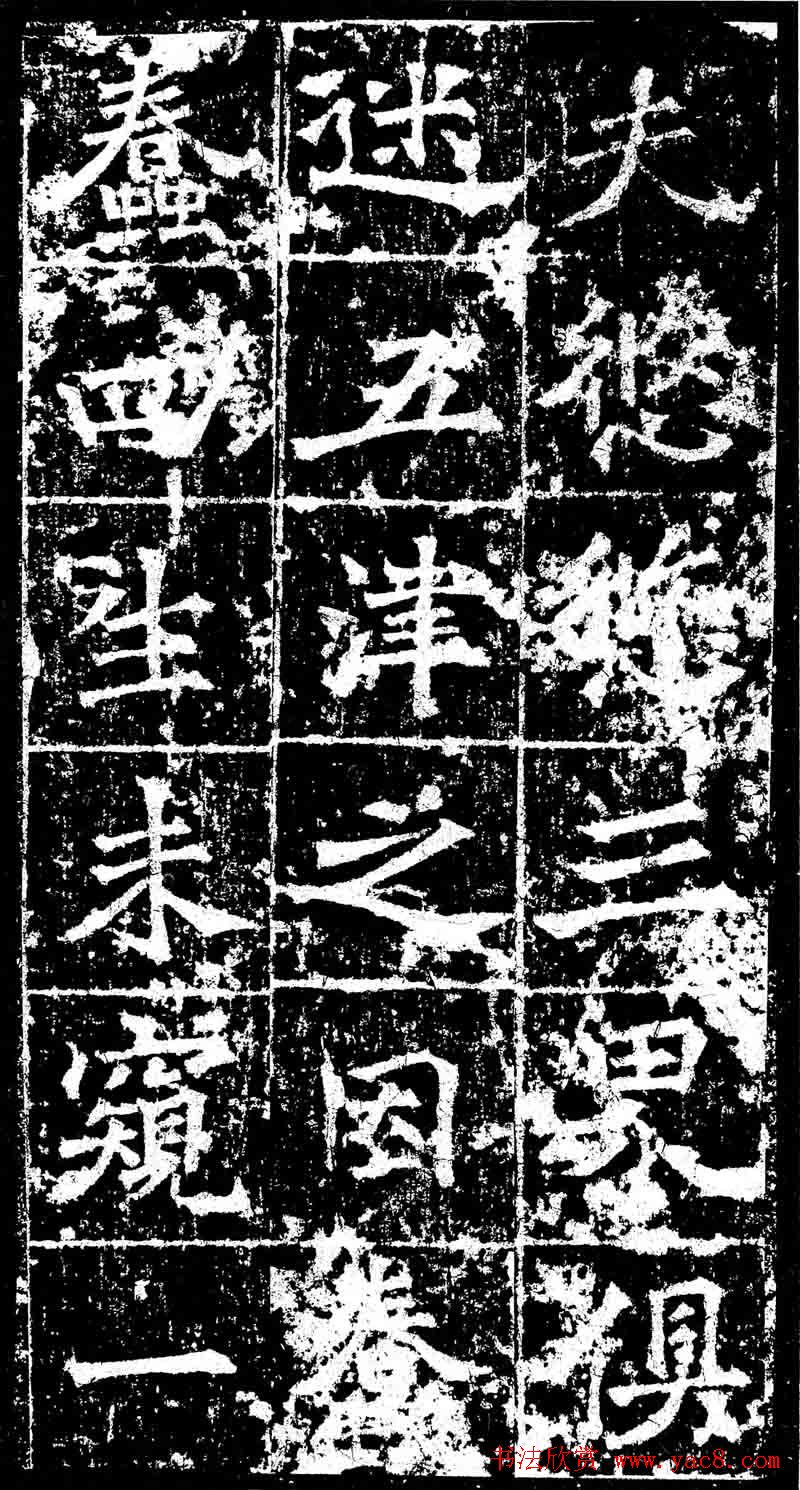 夫悠三界俱
迷五津之因蠢
蠢四生未窺一
书法欣赏 www.yac8.com